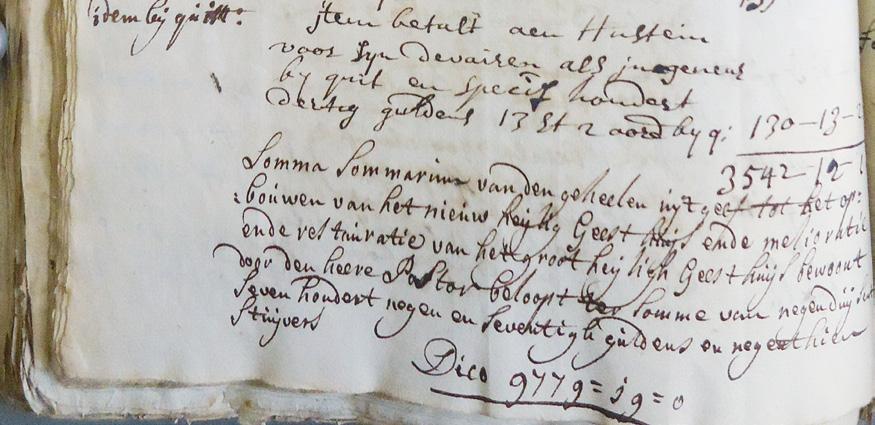 idem bij quitt:
jtem betalt aen Hustein
voor syn devairen als jngeneur
by quit en specif hondert
dertig guldens 13 st 2 oord by q: 130-13-2
3542-12
Somma Sommarium van den geheelen uijtgeef tot het op:
:bouwen van het nieuw heylig Geest huijs ende melioratie
ende restauratie van het groot heyligh Geest huijs bewoont
door den heere Pastor beloopt somme van negenduijsent
seven hondert negen en seventigh guldens en negenthien
stuijvers
Dico 9779=19=0